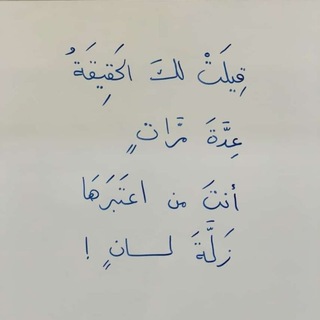 قِيلَتْ لكَ الحَقِيقَةُ
عِدَّةَ مَّرات ٍ
أنتَ من اعتَبَرَهَا
زَلَّةَ لـسـانٍ !